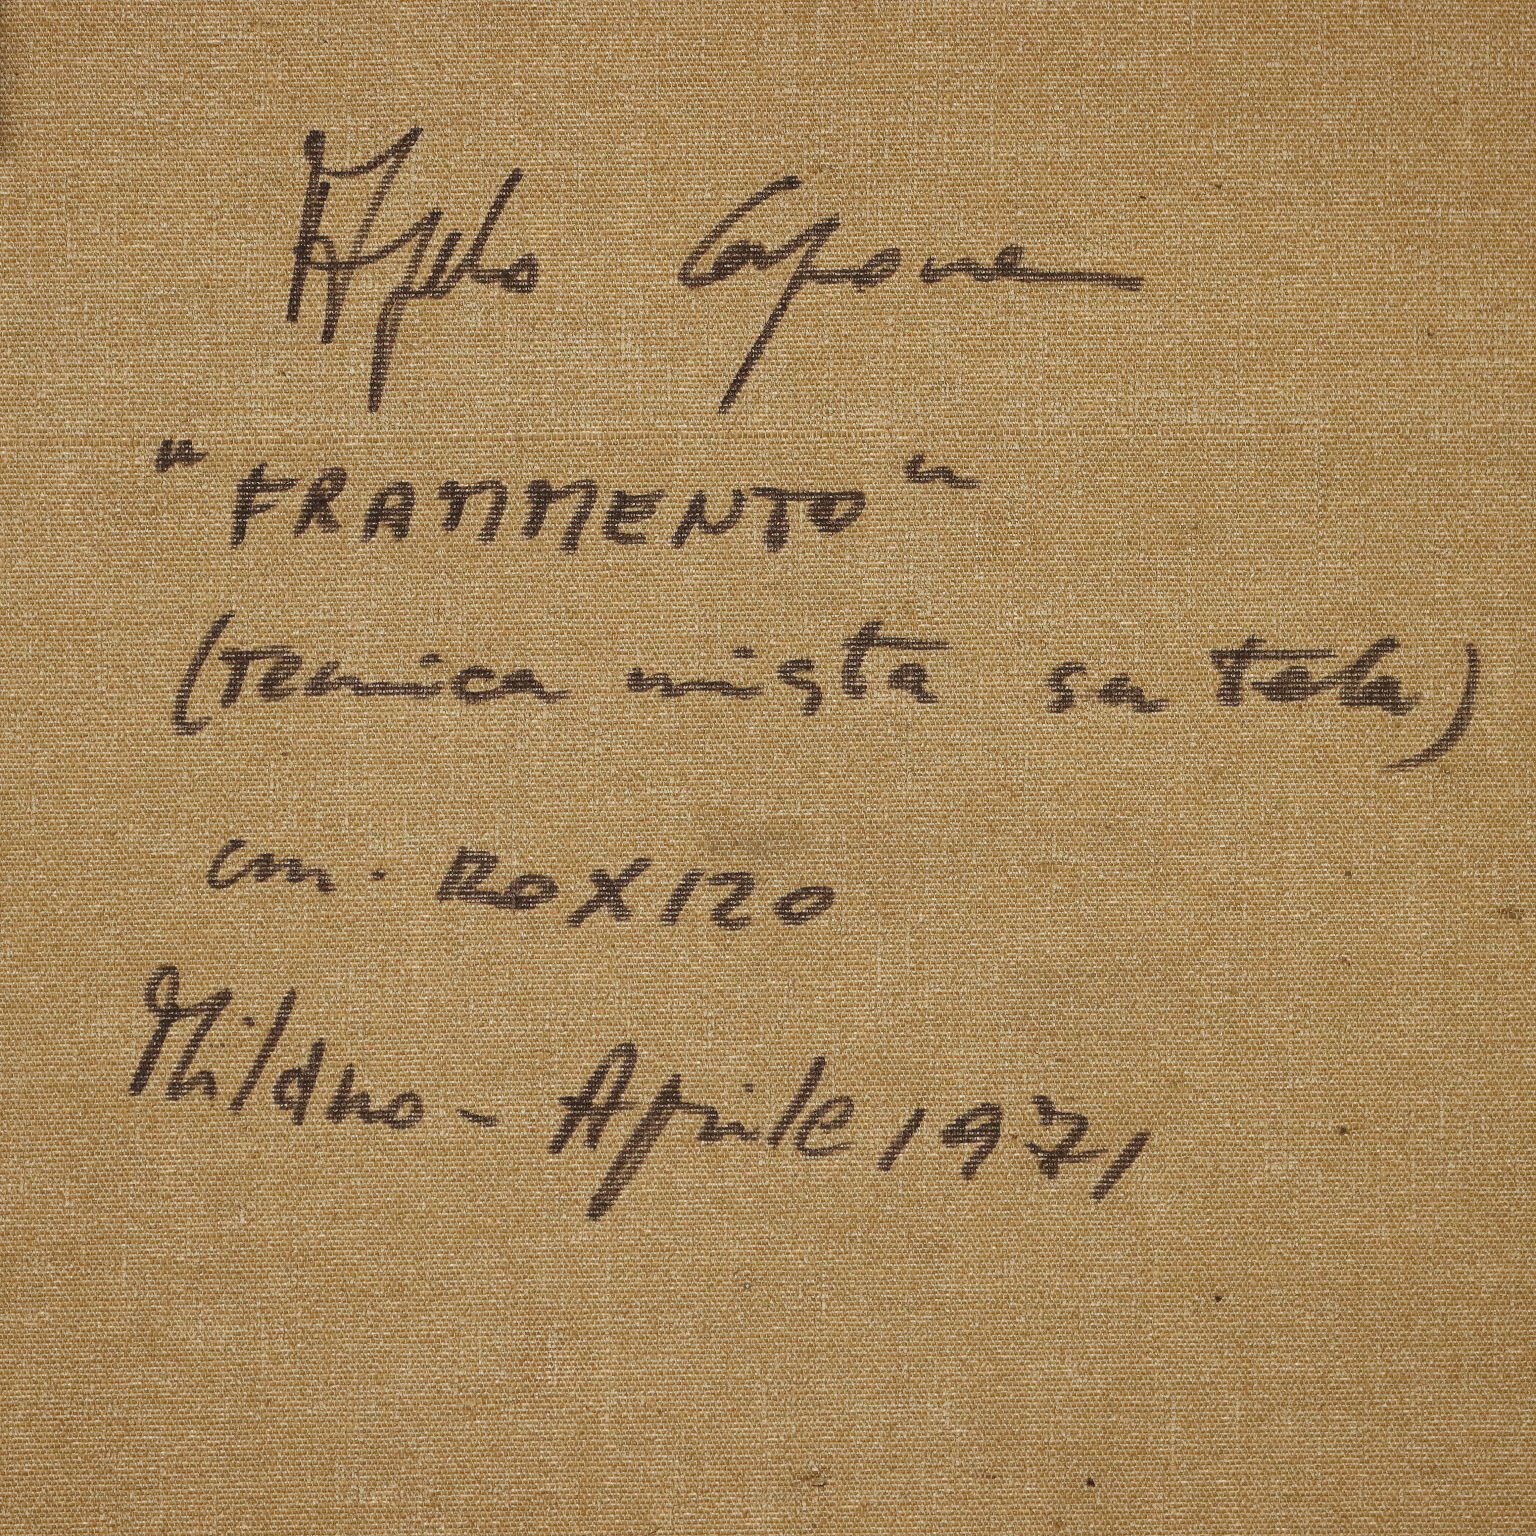 Capone
"FRAMMENTO"
(Tecnica mista su tela)
cm. 120X120
Milano - Aprile 1971